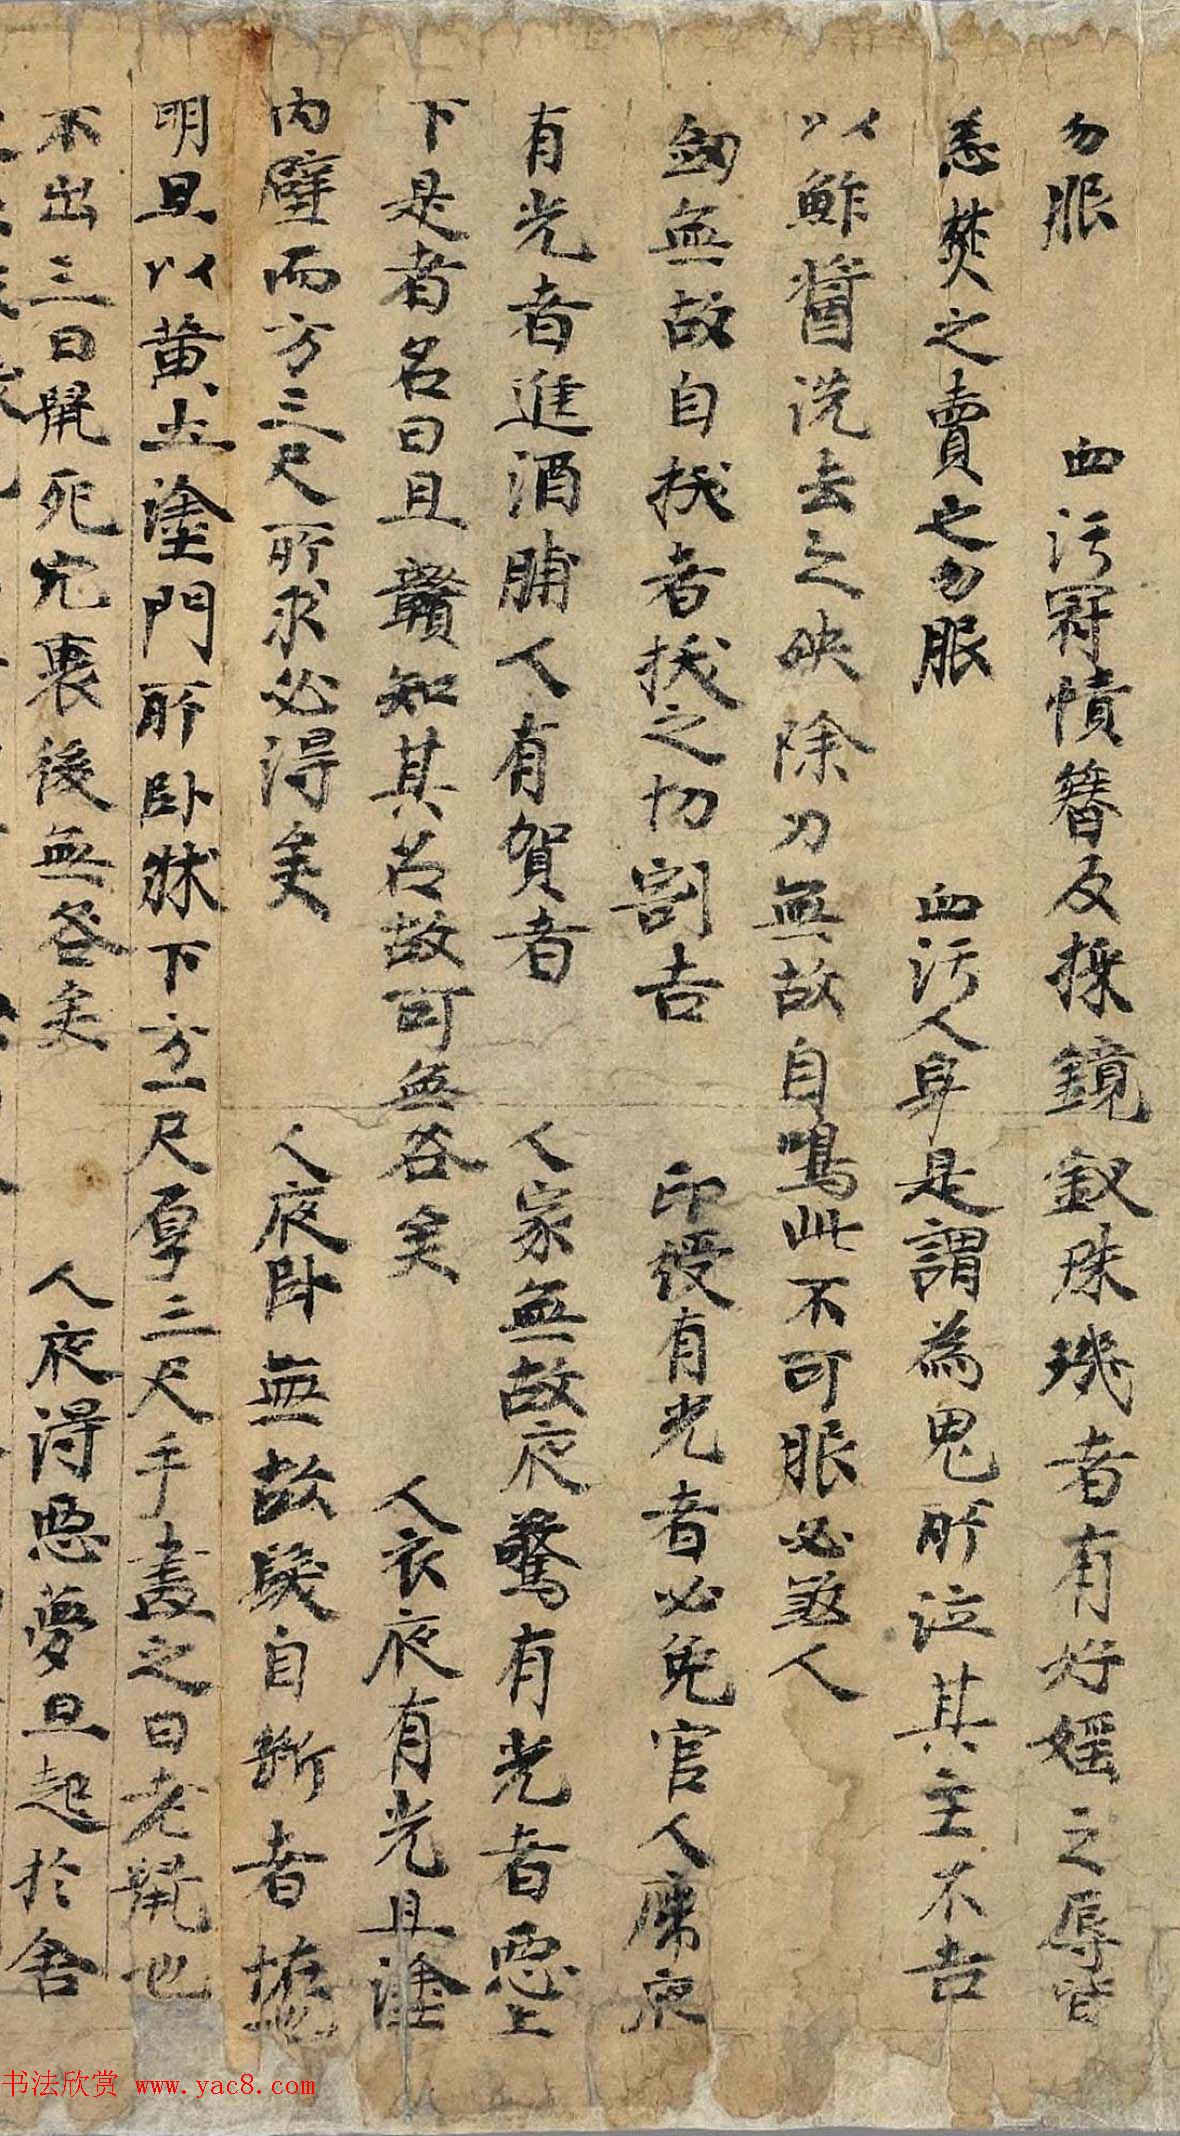 勿服　血污冠幘簪及採鏡釵珠璣者有好婬之辱皆
悉焚之賣之勿服　血污人身是謂為鬼所泣其主不吉
以鮓醬洗去之殃除刀無故自鳴此不可服必煞人
劔無故自拔者拔之切割吉　印綬有光者必免官人席夜
有光者進酒脯人有賀者　人家無故夜驚有光者惡上
下是者名曰且贛知其名故可無咎矣　人衣夜有光且塗
內壁而方三尺所求必得矣　人夜卧無故髮自斷者
明旦以黄土塗門所卧牀下方一尺厚三尺手畫之曰老鼠也
不出三日鼠死穴裏後無咎矣　人夜得惡夢旦起於舍
书法欣赏 www.yac8.com